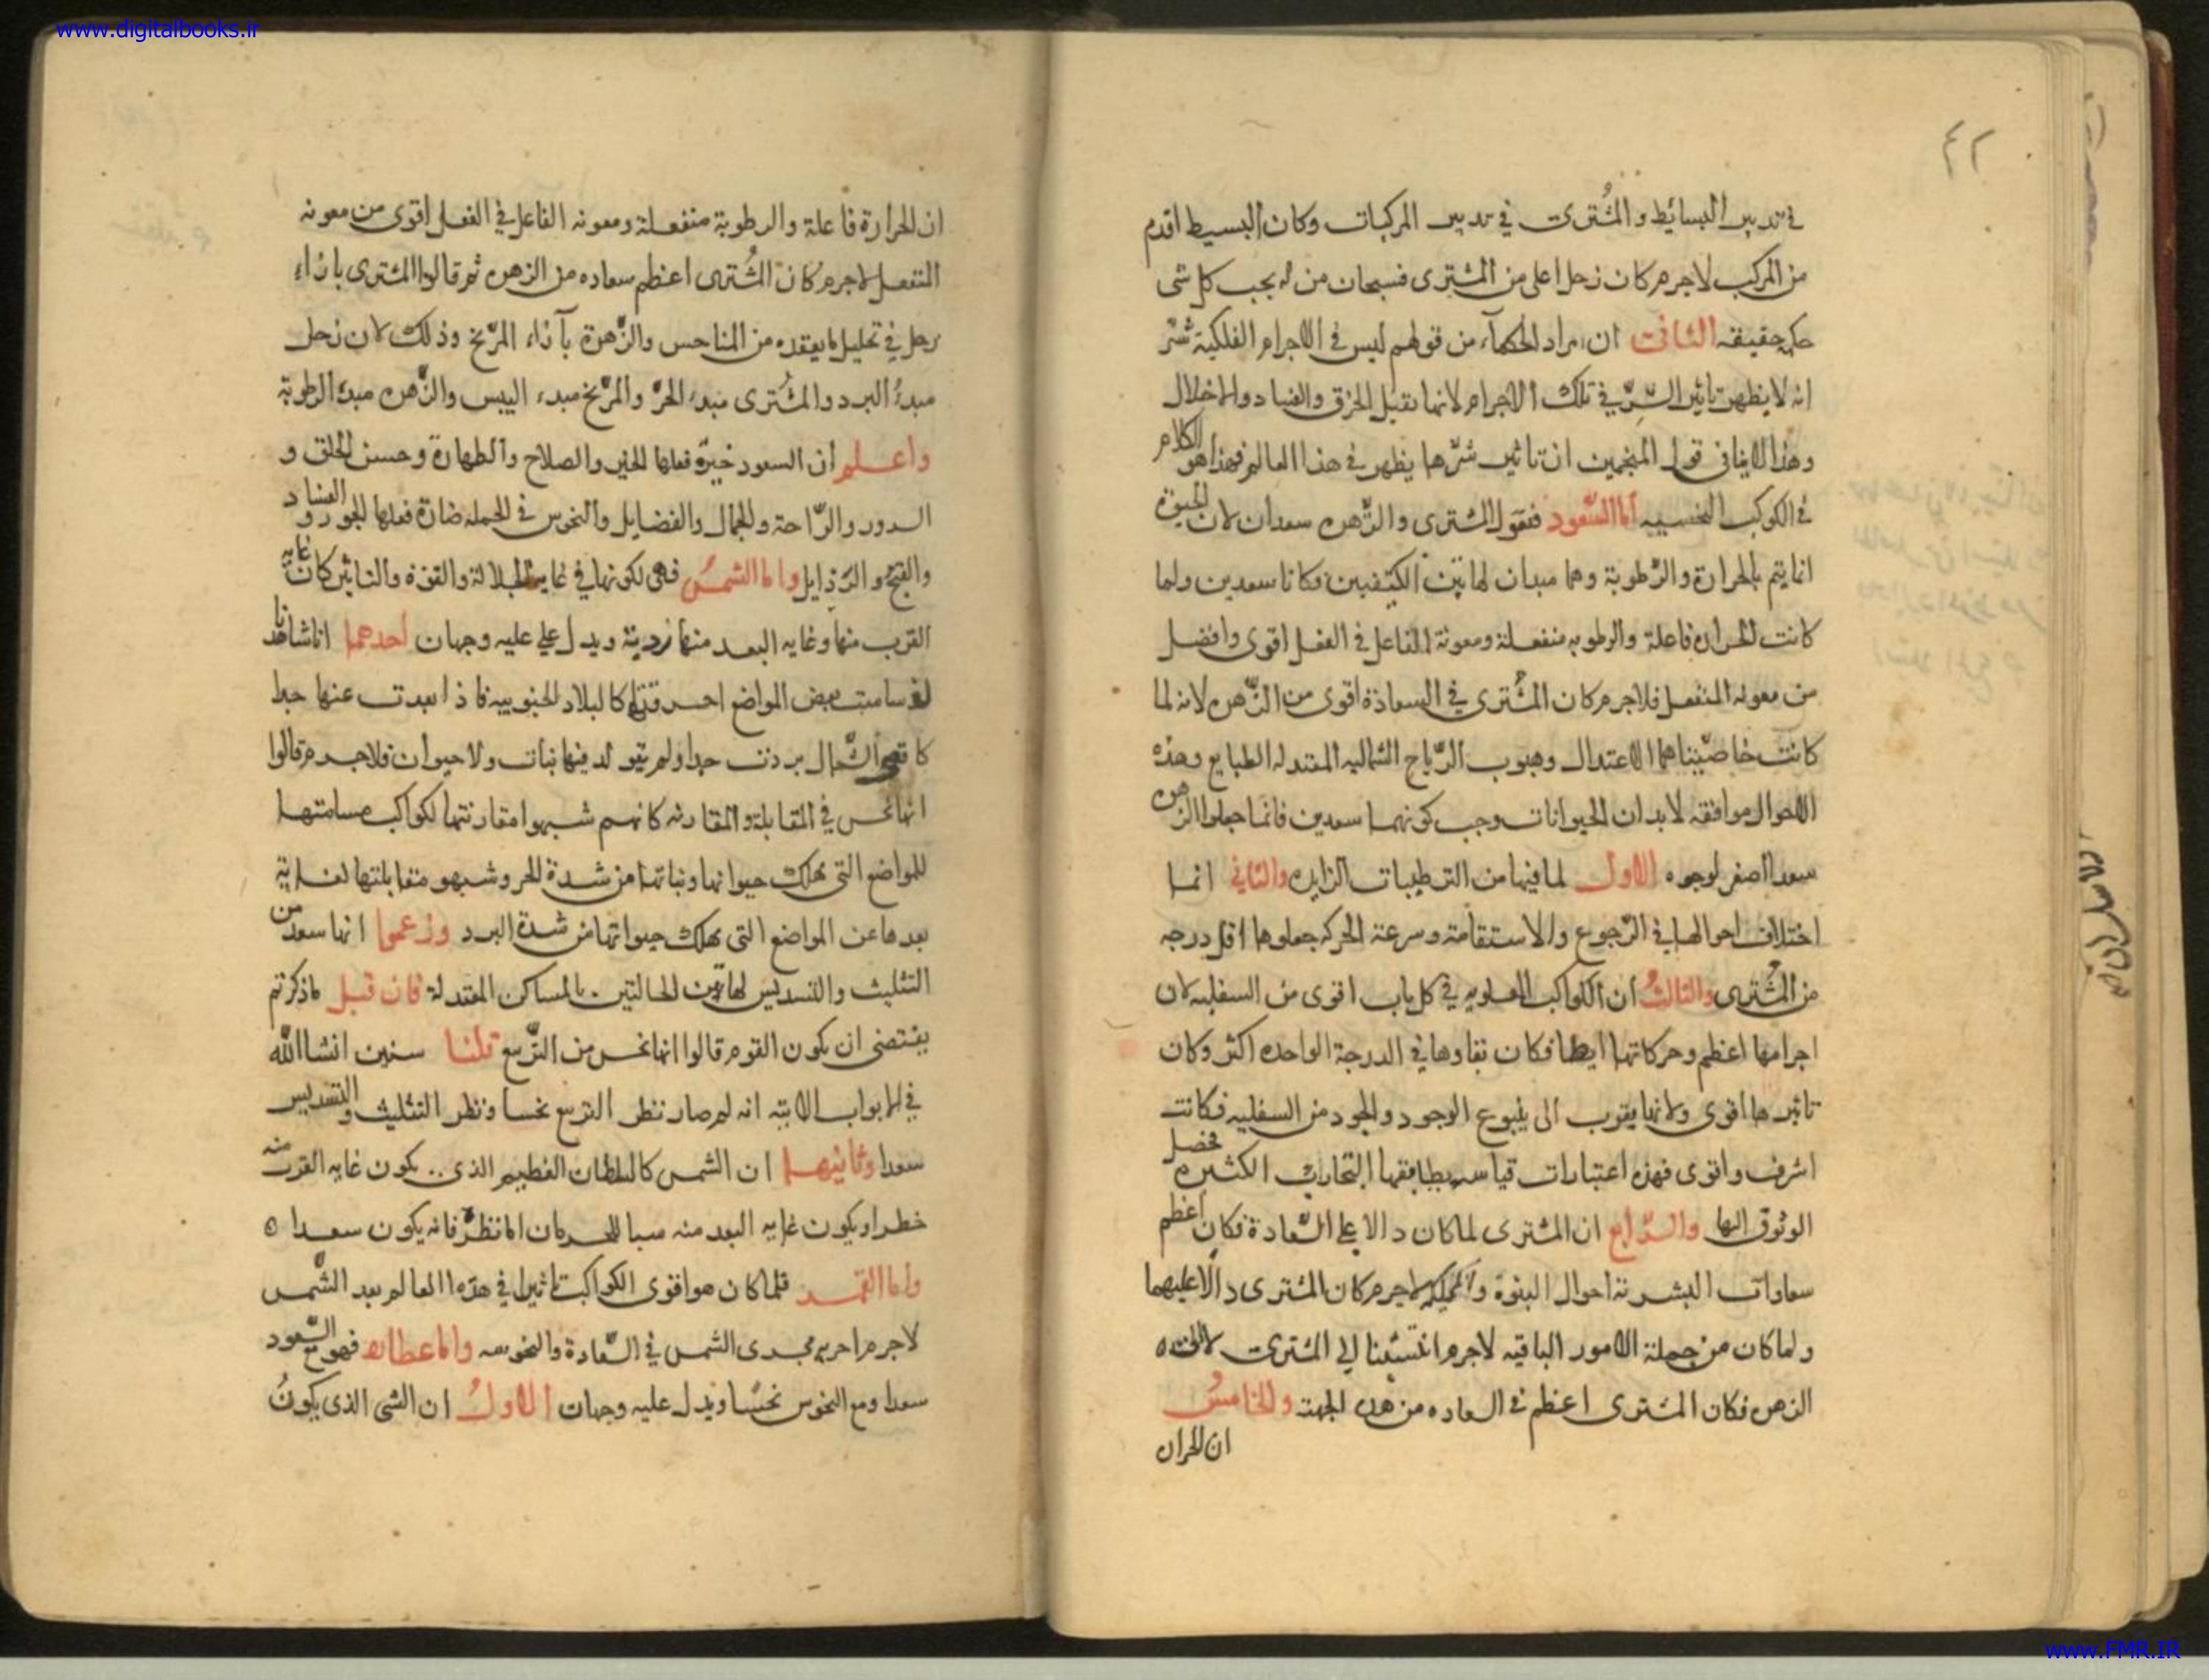 www.digitalbooks.ir
٤٢
في تدبير البسائط والمشترى في تدبير المركبات وكان البسيط اقدم
من المركب لاجرم كان زحل اعلى من المشترى فسبحان من له بحب كل شى
حكمة حقيقه الثانى ان مراد الحكماء من قولهم ليس فى الاجرام الفلكية شر
انه لا يظهر تاثير الشر في تلك الاجرام لانها تقبل الخرق والفساد والاخلال
وهذا لا ينافى قول المنجمين ان تاثير شرها يظهر فى هذا العالم فهذا هو الكلام
فى الكوكب النحسيه أما السعود فنقول المشترى والزهره سعدان لان الحيوة
انما يتم بالحرارة والرطوبة وهما مبدان لهاتين الكيفيتين فكانا سعدين ولما
كانت الحراره فاعلة والرطوبه منفعلة ومعونة الفاعل فى الفعل اقوى وافضل
من معونه المنفعل فلاجرم كان المشترى في السعادة اقوى من الزهره لانه لما
كانت خاصيتاهما الاعتدال وهبوب الرياح الشماليه المعتدله الطبايع وهذه
الاحوال موافقه لابدان الحيوانات وجب كونهما سعدين فانما جعلوا الزهره
سعدا اصغر لوجوه الاول لما فيها من الترطيبات الزايده والثانى انما
اختلاف احوالها في الرجوع والاستقامة وسرعة الحركه جعلوها اقل درجه
من المشترى والثالث أن الكواكب العلويه في كل باب اقوى من السفليه لان
اجرامها اعظم وحركاتها ابطا فكان بقاوها في الدرجة الواحده اكثر وكان
تاثيرها اقوى ولانها يقرب الى ينبوع الوجود والجود من السفليه فكانت
اشرف واقوى فهذه اعتبارات قياسيه يطابقها التجارب الكثيره فحصل
الوثوق اليها والرابع ان المشترى لما كان دالا على السعادة فكان اعظم
سعادات البشرية احوال النبوة والحكمة لاجرم كان المشترى دالا عليهما
ولما كان من جملة الامور الباقيه لاجرم انتسبنا الى المشترى
الزهره فكان المشترى اعظم فى السعاده من هذه الجهة والخامس
ان الحراره
ان الحرارة فاعلة والرطوبة منفعلة ومعونه الفاعل في الفعل اقوى من معونه
المنفعل لاجرم كان المشترى اعظم سعاده من الزهره ثم قالوا المشترى بازاء
زحل في تحليل ما يعقده من المناحس والزهرة بآزاء المريخ وذلك لان زحل
مبدء البرد والمشترى مبدء الحر والمريخ مبدء اليبس والزهره مبدء الرطوبة
واعلم أن السعود خيرة فعلها الخير والصلاح والطهارة وحسن الخلق و
السرور والراحة والجمال والفضايل والنحوس في الجمله ضارة فعلها الجور والفساد
والقبح والرذايل واما الشمس فهى لكونها في غاية الجلالة والقوة والتاثير كان غايه
القرب منها وغايه البعد منها ردية ويدل على عليه وجهان أحدهما انا شاهدنا
سامتت بعض المواضع احرقتها كالبلاد الجنوبيه فاذا بعدت عنها جدا
كما في الشمال بردت جدا ولم يتولد فيها نبات ولا حيوان فلاجرم قالوا
انها نحس في المقابلة والمقارنه كانهم شبهوا مقارنتها لكواكب مسامتتها
للمواضع التى يهلك حيوانها ونباتها من شدة الحر وشبهو مقابلتها لغاية
بعدها عن المواضع التى يهلك حيواناتها من شدة البرد وزعموا انها سعد من
التثليث والتسديس لهاتين الحالتين بالمساكن المعتدلة فان قيل ما ذكرتم
يقتضى ان يكون القوم قالوا انها نحس من التربيع قلنا سنبين انشا الله
في الابواب الاتية انه لم صار نظر التربيع نحسا ونظر التثليث والتسديس
سعدا وثانيهما ان الشمس كالسلطان العظيم الذى يكون غايه القرب منه
خطرا ويكون غايه البعد منه سببا للحرمان اما نظره فانه يكون سعدا ه
واما القمر فلما كان هو اقوى الكواكب تاثيرا في هذه العالم بعد الشمس
لاجرم اجريه مجرى الشمس في السعادة والنحوسه واما عطارد فهو مع السعود
سعدا ومع النحوس نحسا ويدل عليه وجهان الاول ان الشى الذى يكون
www.FMR.IR